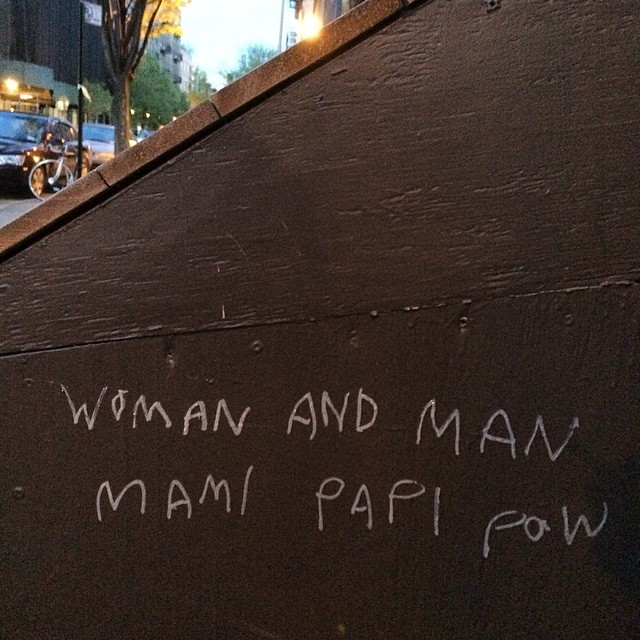 WOMAN AND MAN
MAMI PAPI PaW